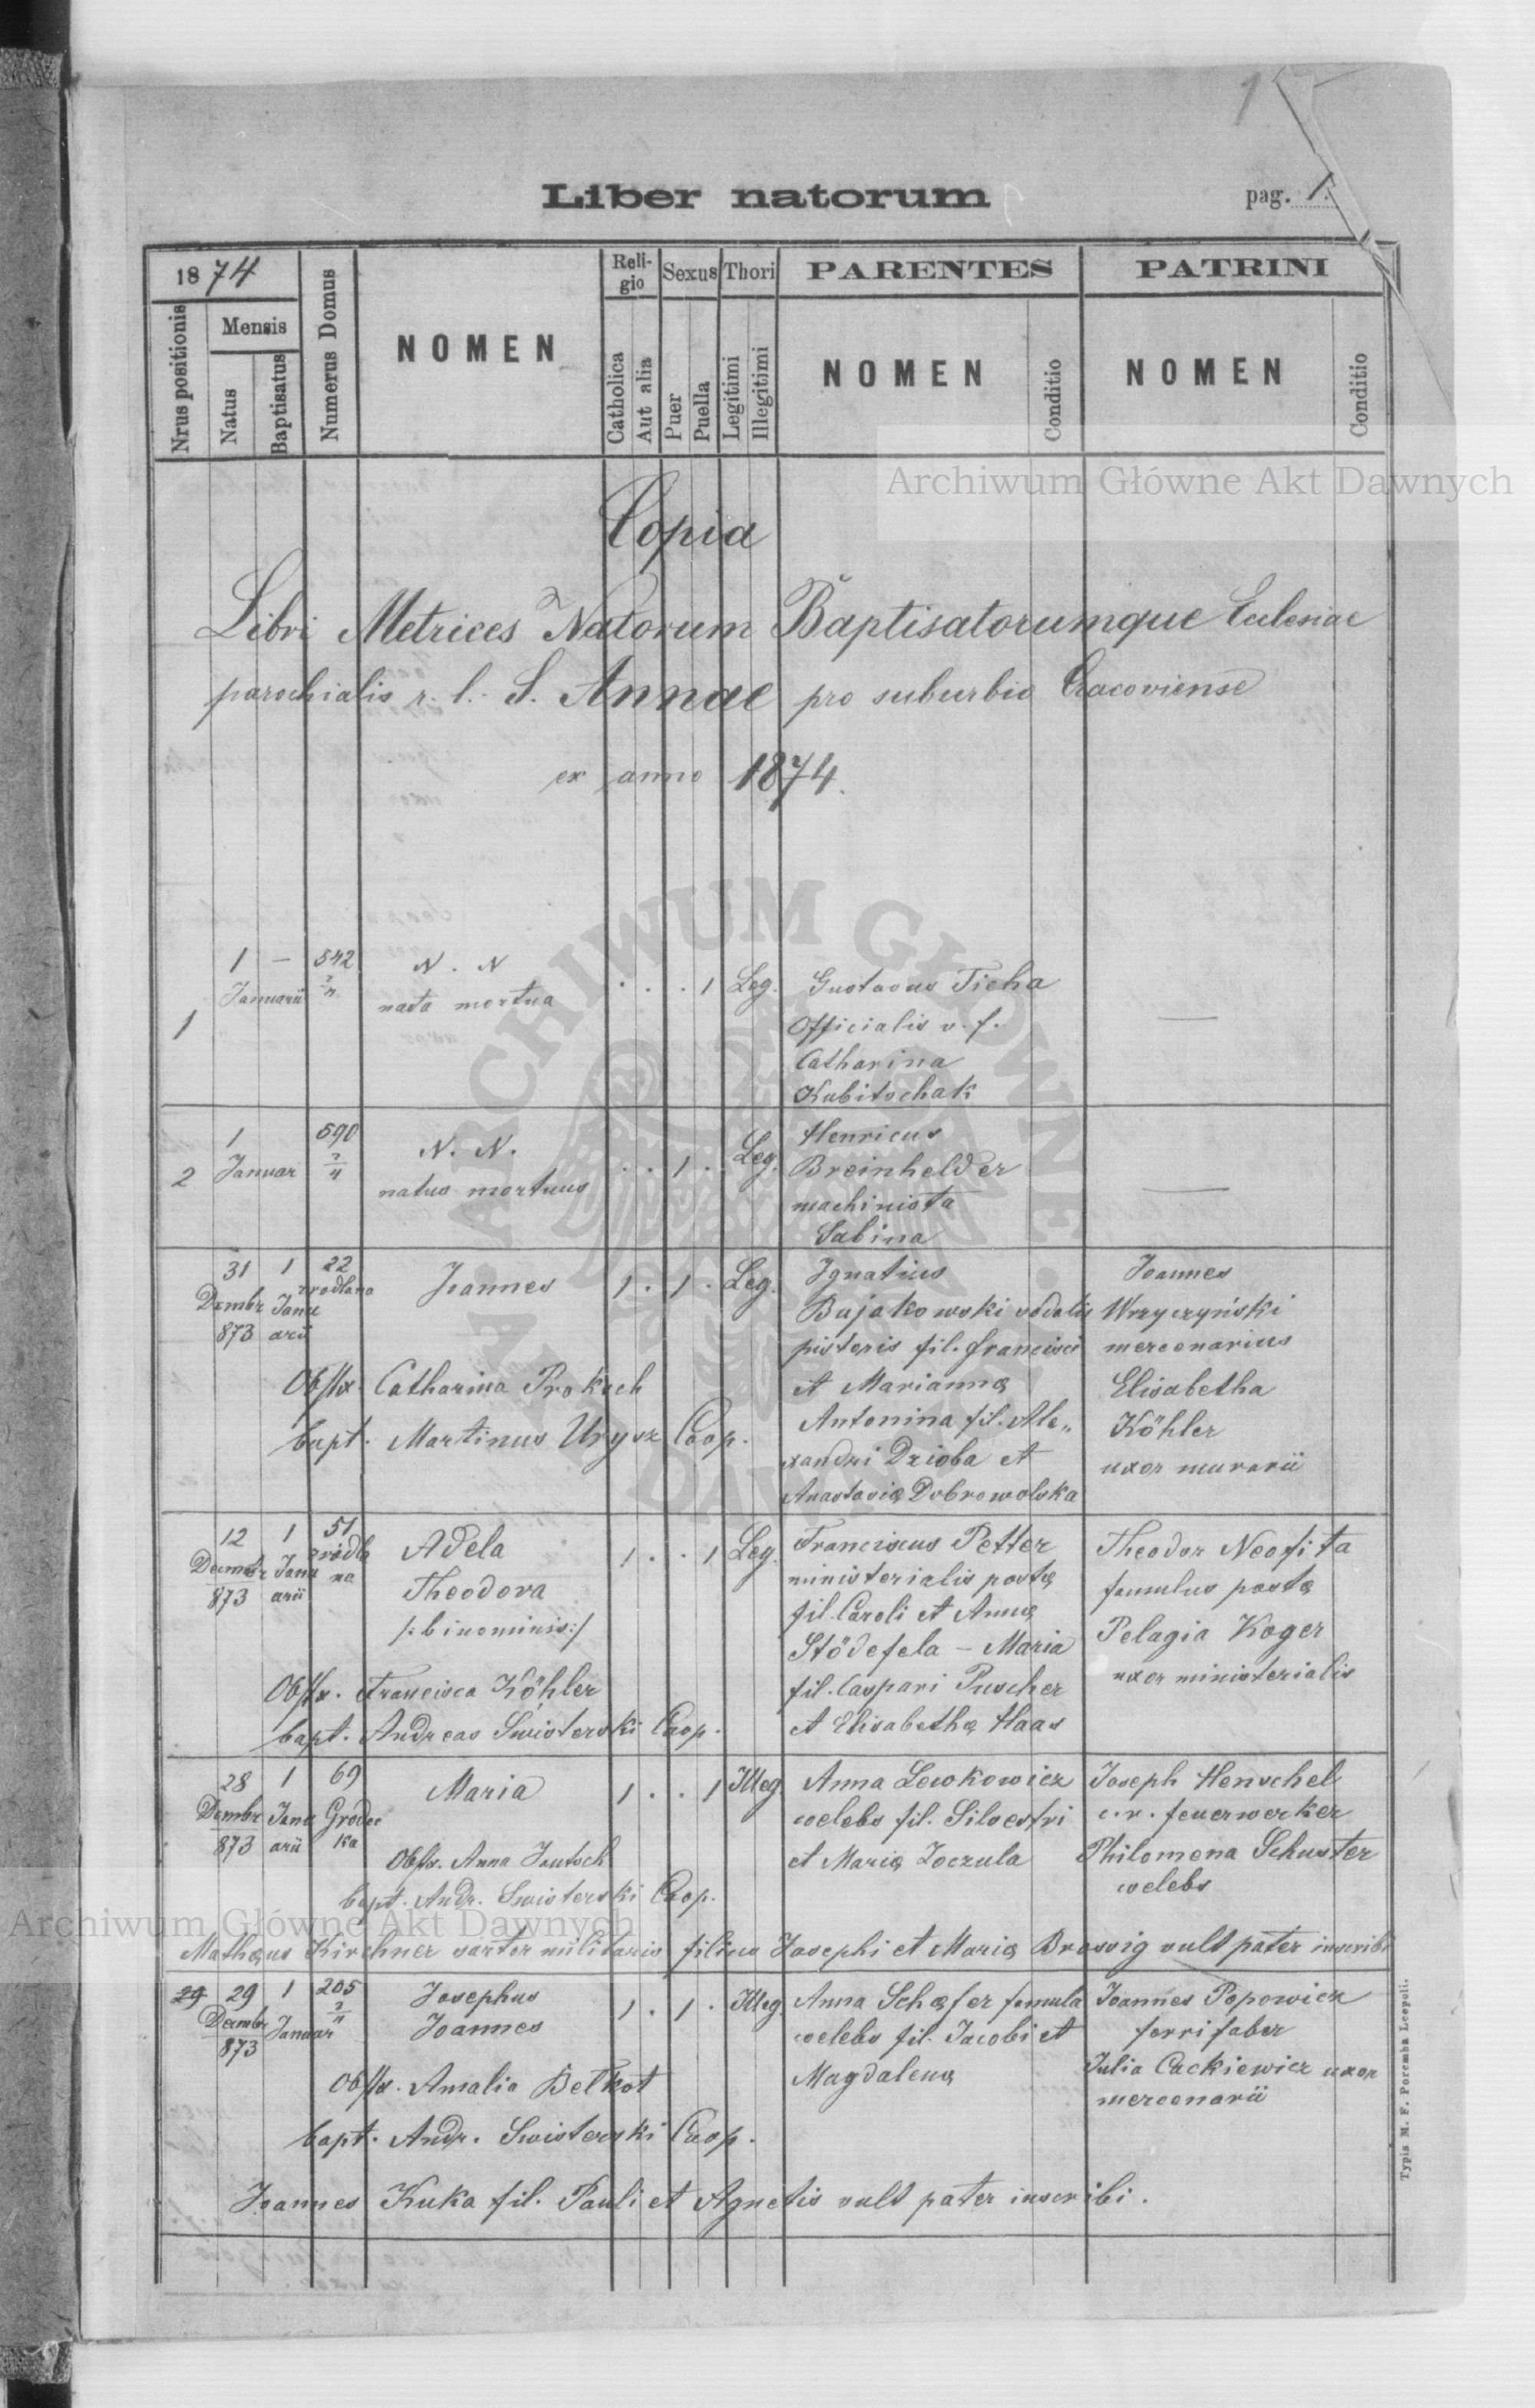 1
Liber natorum
pag. 1.
1874
Nrus positionis
Mensis
Natus
Baptisatus
Numerus Domus
NOMEN
Reli-
gio
Catholica
Aut alia
Sexus
Puer
Puella
Thori
Legitimi
Illegitimi
PARENTES
NOMEN
Conditio
PATRINI
NOMEN
Conditio
Archiwum Główne Akt Dawnych
Copia
Libri Metrices Natorum Baptisatorumque Ecclesiae
parochialis r. l. S. Annae pro suburbio Cracoviense
ex anno 1874.
ARCHIWUM GŁÓWNE AKT DAWNYCH
1
1 —
Januarii
542
2/4
N. N
nata mortua
. . . 1 Leg.
Gustavus Ticha
Officialis v. f.
Catharina
Kubitschak
—
2
1
Januar
590
2/4
N. N.
natus mortuus
. . 1 . Leg.
Henricus
Breinhelder
machinista
Sabina
—
31 1 22
Dzmbr Janu
873 arii
Joannes
1 . 1 . Leg.
Obstx. Catharina Prokesch
bapt. Martinus Urysz Coop.
Ignatius
Bajakowski sodalis
pistoris fil. Francisci
et Mariannę
Antonina fil. Ale„
xandri Dzioba et
Anastasię Dobrowolska
Joannes
Wrzyczyński
mercenarius
Elisabetha
Köhler
uxor murarii
12 1 51
Decembr Janu
873 arii
Adela
Theodora
/:binominis:/
1 . . 1 Leg.
Obstx. Francisca Köhler
bapt. Andreas Swisterski Coop.
Franciscus Petter
ministerialis postę
fil. Caroli et Annę
Stödefela – Maria
fil. Caspari Puscher
et Elisabethę Haas
Theodor Neofita
famulus postę
Pelagia Koger
uxor ministerialis
28 1 69
Dembr Janu Grodec
873 arii ka
Maria
1 . . 1 Illeg.
Obstx. Anna Jautsch
bapt. Andr. Swisterski Coop.
Anna Lewkowicz
coelebs fil. Silvestri
et Marię Joczula
Joseph Henschel
c. r. feuerwerker
Philomena Schuster
coelebs
Archiwum Główne Akt Dawnych
Mathęus Kirchner sartor militaris filius Josephi et Marię Brossig vult pater inscribi
29 29 1 205
Decembr Januar 2/4
873
Josephus
Joannes
1 . 1 . Illeg
Obstx. Amalia Betkot
bapt. Andr. Swisterski Coop.
Anna Schęfer famula
coelebs fil. Jacobi et
Magdalenę
Joannes Popowicz
ferri faber
Julia Cackiewicz uxor
mercenarii
Joannes Kuka fil. Pauli et Agnetis vult pater inscribi.
Typis M. F. Poremba Leopoli.